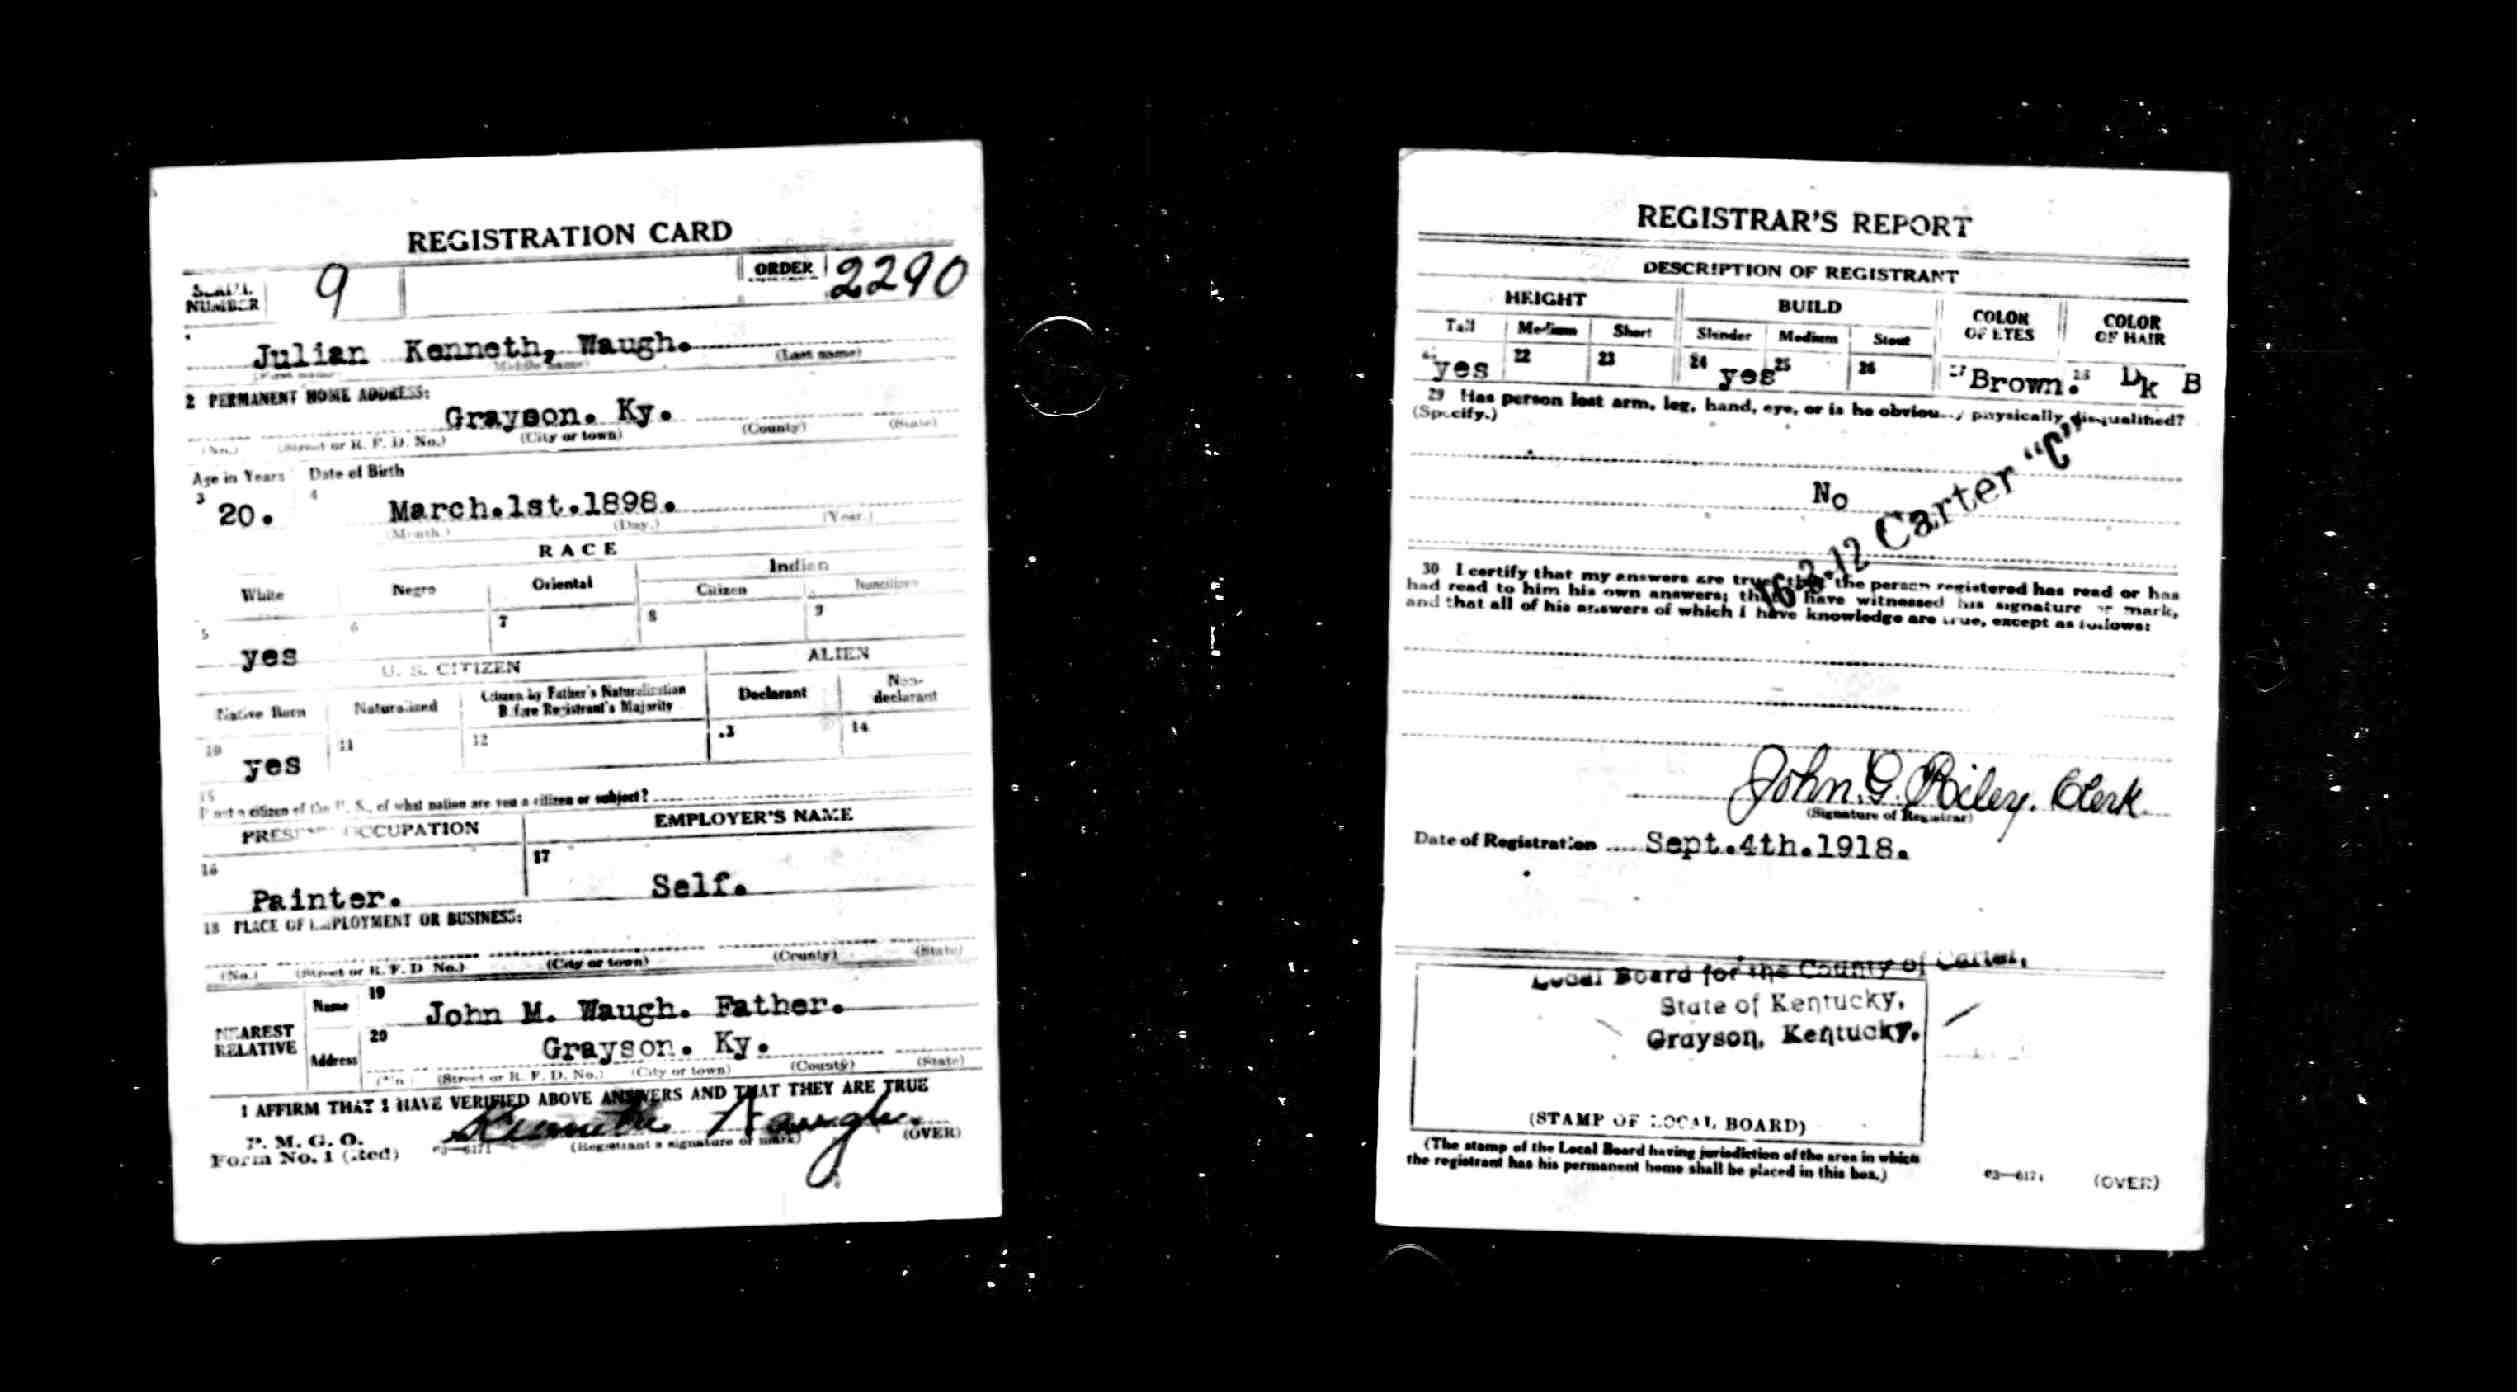 REGISTRATION CARD
NUMBER 9 ORDER 2290
Julian Kenneth, Waugh.
(Last name)
2 PERMANENT HOME ADDRESS:
Grayson. Ky.
(No.) (Street or R. F. D. No.) (City or town) (County) (State)
Age in Years Date of Birth
3 20. 4 March.1st.1898.
(Month.) (Day.) (Year.)
RACE
White Negro Oriental Indian
Citizen Noncitizen
5 6 7 8 9
yes
U. S. CITIZEN ALIEN
Native Born Naturalized Citizen by Father's Naturalization Before Registrant's Majority Declarant Non-declarant
10 11 12 13 14
yes
15
If not a citizen of the U. S., of what nation are you a citizen or subject?
PRESENT OCCUPATION EMPLOYER'S NAME
16 17
Painter. Self.
18 PLACE OF EMPLOYMENT OR BUSINESS:
(No.) (Street or R. F. D. No.) (City or town) (County) (State)
NEAREST RELATIVE
Name 19 John M. Waugh. Father.
Address 20 Grayson. Ky.
(No.) (Street or R. F. D. No.) (City or town) (County) (State)
I AFFIRM THAT I HAVE VERIFIED ABOVE ANSWERS AND THAT THEY ARE TRUE
P. M. G. O.
Form No. 1 (Red) Kenneth Waugh.
(Registrant's signature or mark) (OVER)
REGISTRAR'S REPORT
DESCRIPTION OF REGISTRANT
HEIGHT BUILD COLOR OF EYES COLOR OF HAIR
Tall Medium Short Slender Medium Stout
yes 22 23 24 yes 25 26 27 Brown. 28 Dk B
29 Has person lost arm, leg, hand, eye, or is he obviously physically disqualified?
(Specify.)
No
16-3-12 Carter "C"
30 I certify that my answers are true; that the person registered has read or has
had read to him his own answers; that I have witnessed his signature or mark,
and that all of his answers of which I have knowledge are true, except as follows:
John. G. Riley. Clerk.
(Signature of Registrar)
Date of Registration Sept.4th.1918.
Local Board for the County of Carter,
State of Kentucky,
Grayson, Kentucky.
(STAMP OF LOCAL BOARD)
(The stamp of the Local Board having jurisdiction of the area in which
the registrant has his permanent home shall be placed in this box.)
(OVER)